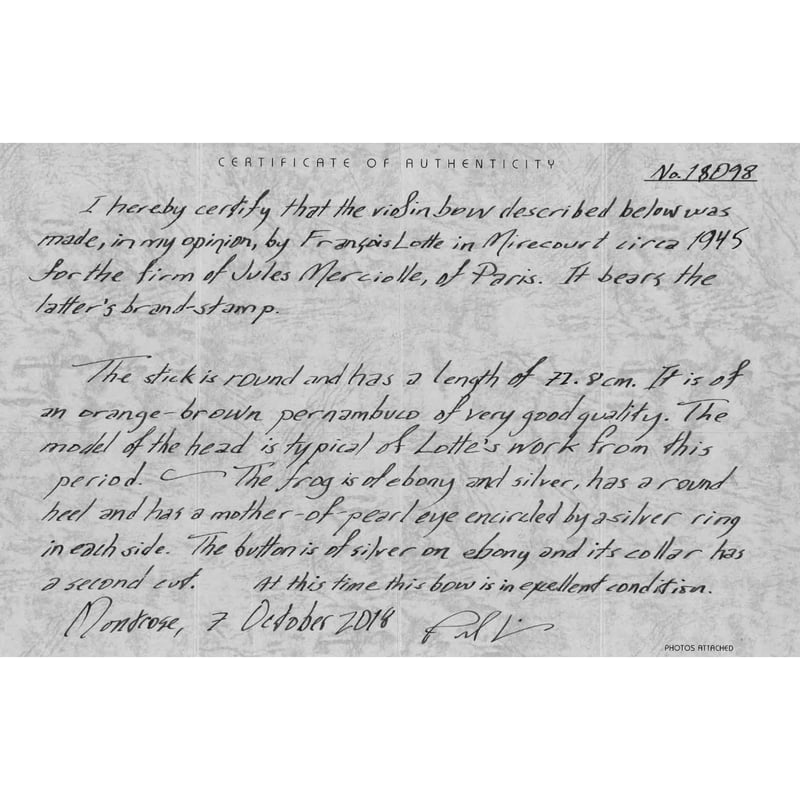 CERTIFICATE OF AUTHENTICITY
No. 18D98
I hereby certify that the violin bow described below was
made, in my opinion, by François Lotte in Mirecourt circa 1945
for the firm of Jules Merciolle, of Paris. It bears the
latter's brand-stamp.
The stick is round and has a length of 72.8cm. It is of
an orange-brown pernambuco of very good quality. The
model of the head is typical of Lotte's work from this
period. The frog is of ebony and silver, has a round
heel and has a mother-of-pearl eye encircled by a silver ring
in each side. The button is of silver on ebony and its collar has
a second cut. At this time this bow is in excellent condition.
Montrose, 7 October 2018
PHOTOS ATTACHED